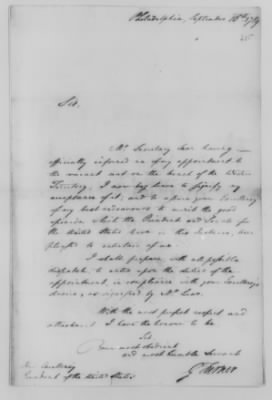 Philadelphia, September 18th 1789
Sir,
Mr. Secretary Lear having
officially informed me of my appointment to
the vacant seat on the bench of the Western
Territory, I now beg leave to signify my
acceptance of it; and to assure your Excellency
of my best endeavours to merit the good
opinion which the President and Senate for
the United States have in this instance, been
pleased to entertain of me.
I shall prepare, with all possible
dispatch, to enter upon the duties of the
appointment, in compliance with your Excellency's
desire, as signified by Mr. Lear.
With the most perfect respect and
attachment I have the honor to be
Sir
Your most obedient
and most humble Servant
G Turner
His Excellency
President of the United States